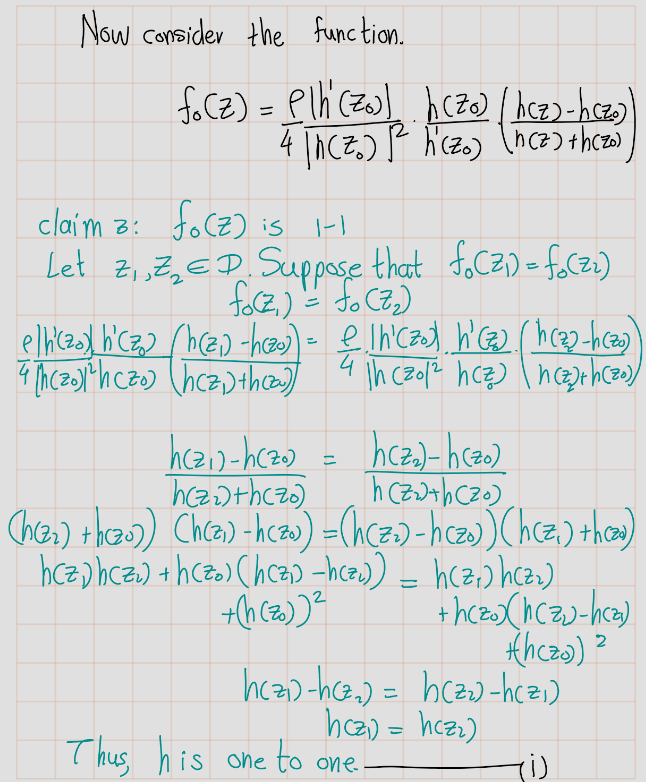 Now consider the function.
f₀(z) = ρ|h'(z₀)| / 4|h(z₀)|² · h(z₀)/h'(z₀) · ((h(z) - h(z₀))/(h(z) + h(z₀)))
claim 3: f₀(z) is 1-1
Let z₁, z₂ ∈ D. Suppose that f₀(z₁) = f₀(z₂)
f₀(z₁) = f₀(z₂)
ρ|h'(z₀)| h'(z₀) / 4|h(z₀)|² h(z₀) ((h(z₁) - h(z₀))/(h(z₁) + h(z₀))) = ρ/4 · |h'(z₀)|/|h(z₀)|² · h'(z₀)/h(z₀) · ((h(z₂) - h(z₀))/(h(z₂) + h(z₀)))
(h(z₁) - h(z₀))/(h(z₂) + h(z₀)) = (h(z₂) - h(z₀))/(h(z₂) + h(z₀))
(h(z₂) + h(z₀)) (h(z₁) - h(z₀)) = (h(z₂) - h(z₀)) (h(z₁) + h(z₀))
h(z₁)h(z₂) + h(z₀)(h(z₁) - h(z₂)) = h(z₁)h(z₂)
+(h(z₀))² + h(z₀)(h(z₂) - h(z₁)
+(h(z₀))²
h(z₁) - h(z₂) = h(z₂) - h(z₁)
h(z₁) = h(z₂)
Thus, h is one to one (i)